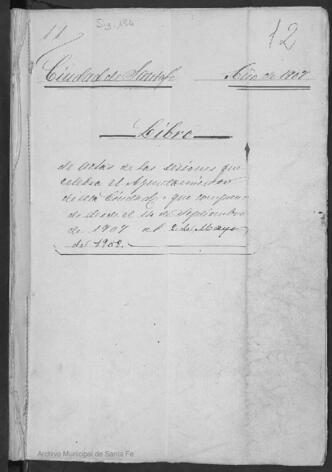 11
Sig. 154
12
Ciudad de Santafe Año de 1907
Libro
de actas de las sesiones que
celebra el Ayuntamiento
de esta Ciudad, que compren-
de desde el 14 de Septiembre
de 1907 al 2 de Mayo
de 1908.
Archivo Municipal de Santa Fe